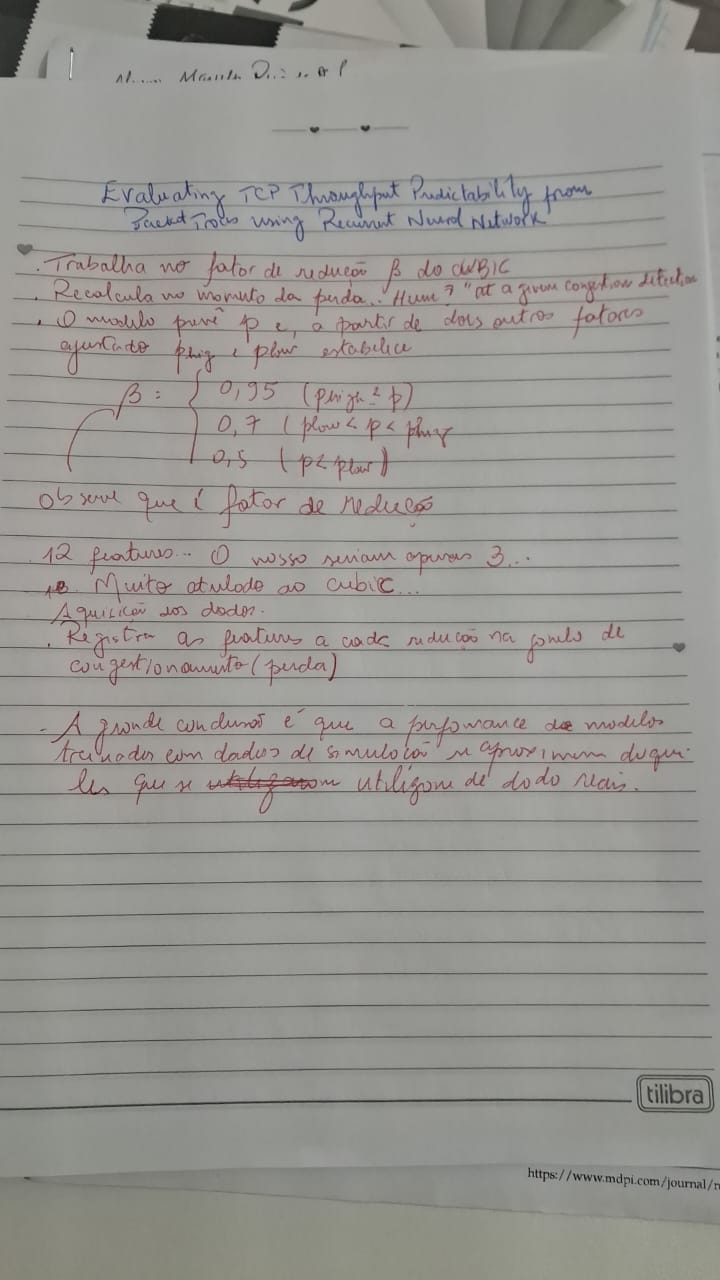 Evaluating TCP Throughput Predictability from
Packet Traces using Recurrent Neural Network
. Trabalha no fator de redução β do CUBIC
. Recalcula no momento da perda. Hum? "at a given congestion detection
. O modelo prevê p e, a partir de dois outros fatores
ajustado phig e plow estabelece
β = { 0,95 (phigh ≤ p)
0,7 ( plow < p < phig
0,5 ( p < plow)
Observe que é fator de redução
12 features... O nosso seriam apenas 3...
Muito atrelado ao cubic...
Aquisição dos dados.
. Registra as features a cada redução na janela de
congestionamento (perda)
- A grande conclusão é que a perfomance de modelos
treinados com dados de simulação se aproximem daque-
les que se utilizam de dado reais.
tilibra
https://www.mdpi.com/journal/